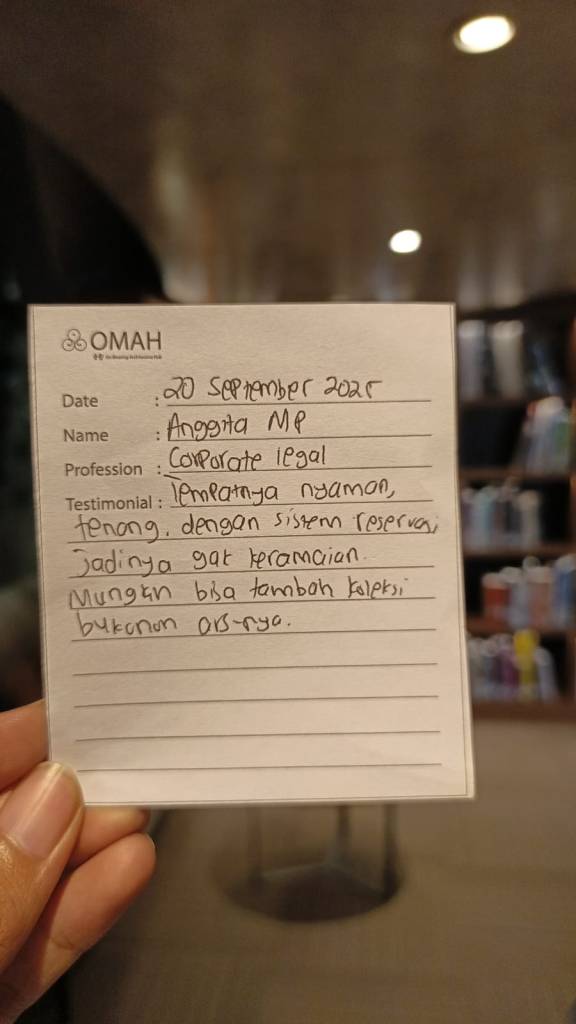 OMAH
Date : 20 September 2025
Name : Anggita MP
Profession : Corporate legal
Testimonial : Tempatnya nyaman,
tenang. dengan sistem reservasi
Jadinya gak keramaian.
Mungkin bisa tambah koleksi
bukanan ars-nya.